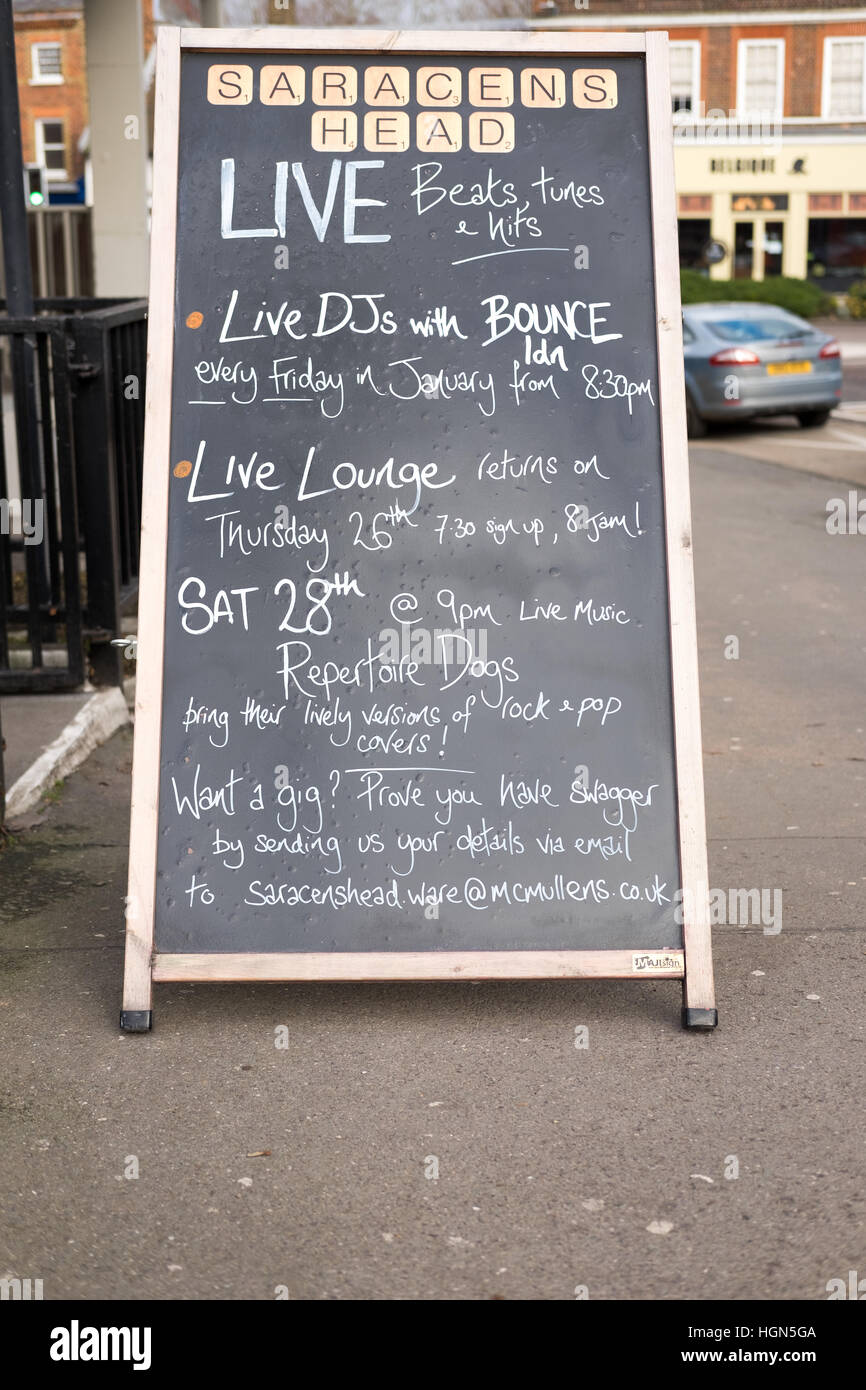 SARACENS
HEAD
LIVE Beats, tunes
& hits
Live DJs with BOUNCE
ldn
every Friday in January from 8:30pm
Live Lounge returns on
Thursday 26th 7.30 sign up, 8 Jam!
SAT 28th @ 9pm Live Music
Repertoire Dogs
bring their lively versions of rock & pop
covers!
Want a gig? Prove you have swagger
by sending us your details via email
to saracenshead.ware@mcmullens.co.uk
MAJIsign
BELGIQUE
alamy
Image ID: HGN5GA
www.alamy.com